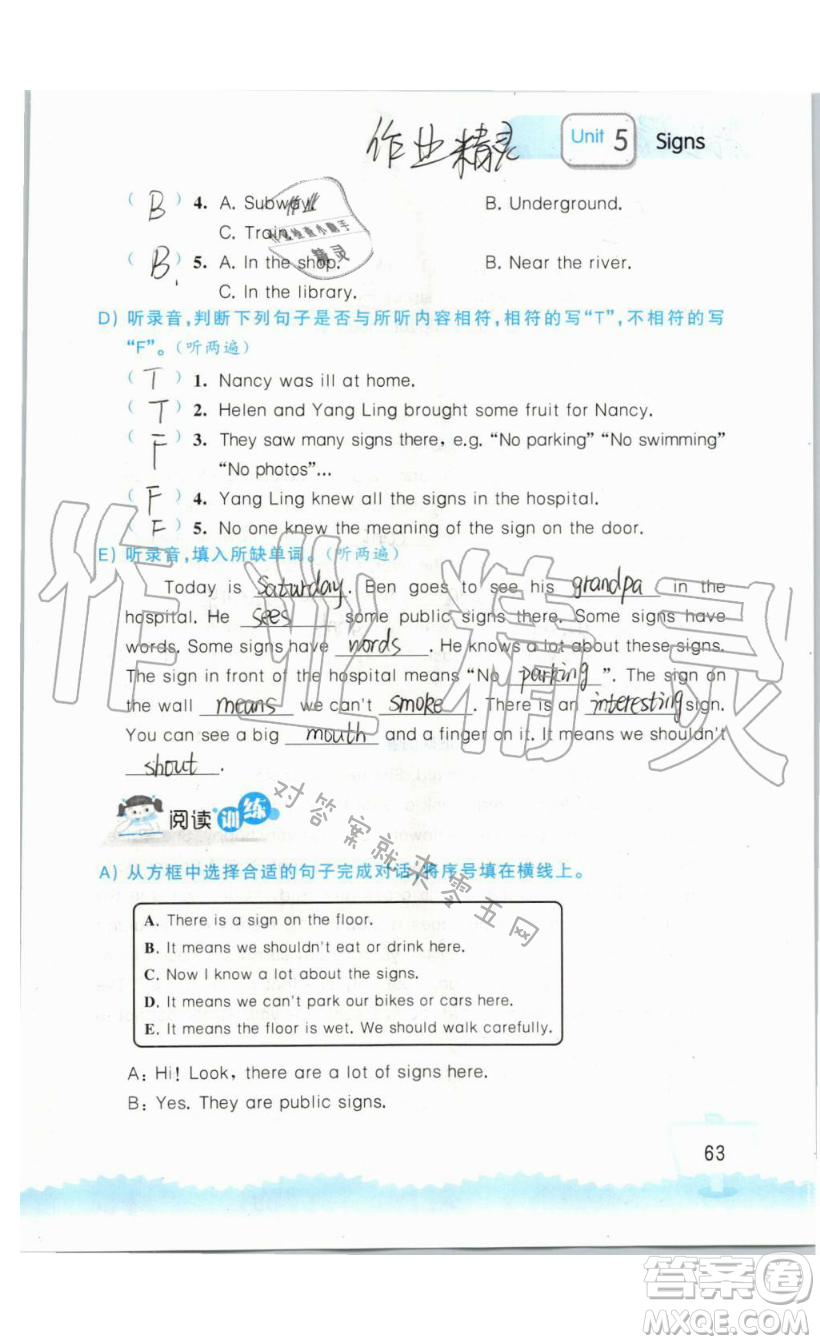 作业精灵 Unit 5 Signs
( B ) 4. A. Subway. B. Underground.
C. Train.
( B ) 5. A. In the shop. B. Near the river.
C. In the library.
D) 听录音,判断下列句子是否与所听内容相符,相符的写“T”,不相符的写
“F”。(听两遍)
( T ) 1. Nancy was ill at home.
( T ) 2. Helen and Yang Ling brought some fruit for Nancy.
( F ) 3. They saw many signs there, e.g. “No parking” “No swimming”
“No photos”...
( F ) 4. Yang Ling knew all the signs in the hospital.
( F ) 5. No one knew the meaning of the sign on the door.
E) 听录音,填入所缺单词。(听两遍)
Today is Saturday. Ben goes to see his grandpa in the
hospital. He sees some public signs there. Some signs have
words. Some signs have words. He knows a lot about these signs.
The sign in front of the hospital means “No parking”. The sign on
the wall means we can't smoke. There is an interesting sign.
You can see a big mouth and a finger on it. It means we shouldn't
shout.
阅读训练
A) 从方框中选择合适的句子完成对话,将序号填在横线上。
A. There is a sign on the floor.
B. It means we shouldn't eat or drink here.
C. Now I know a lot about the signs.
D. It means we can't park our bikes or cars here.
E. It means the floor is wet. We should walk carefully.
A: Hi! Look, there are a lot of signs here.
B: Yes. They are public signs.
63
作业精灵
对答案就来零五网
答案卷
MXQE.COM